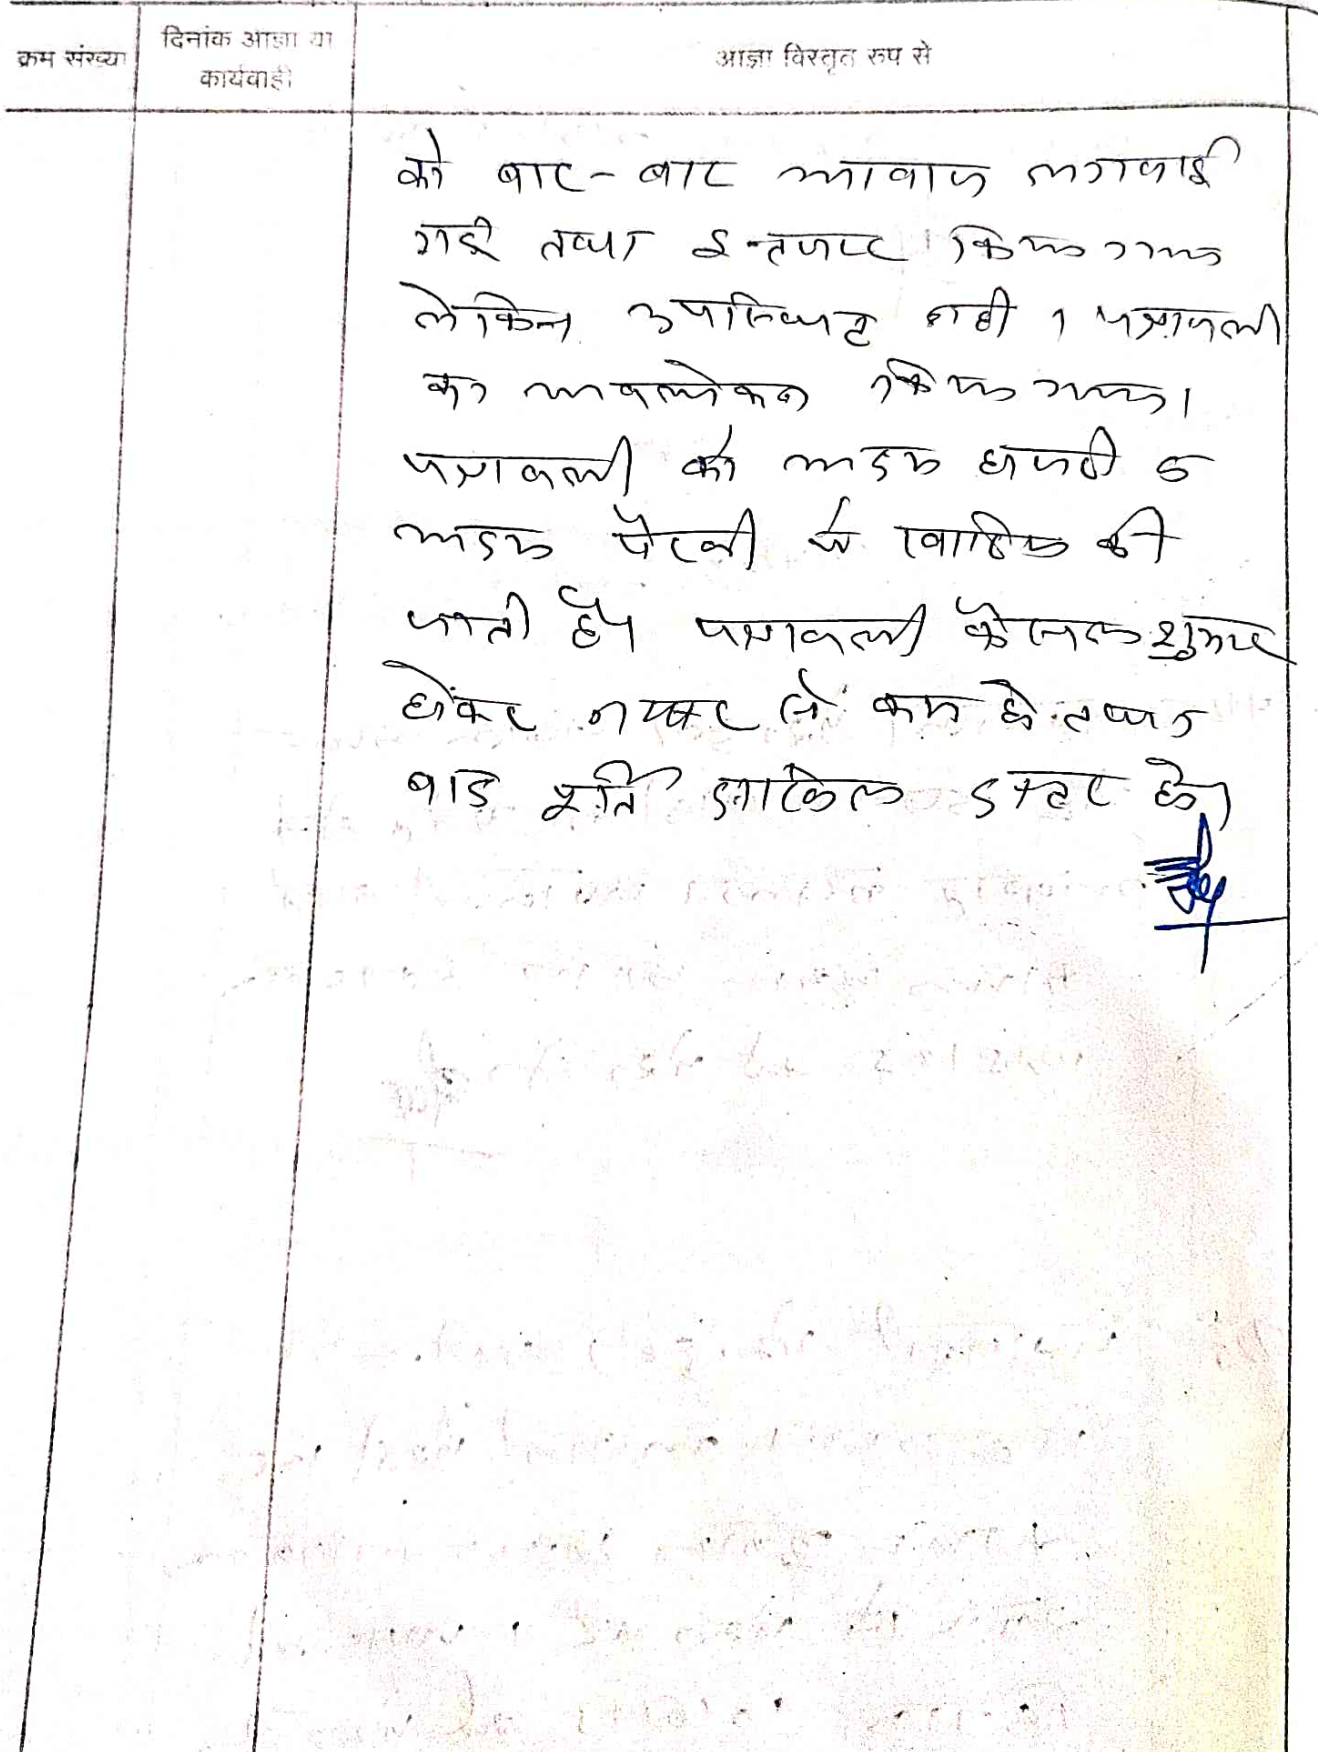 क्रम संख्या
दिनांक आज्ञा या
कार्यवाही
आज्ञा विस्तृत रुप से
को बार-बार आवाज लगवाई
गई तथा इन्तजार किया गया
लेकिन उपस्थित नही । पत्रावली
का अवलोकन किया गया।
पत्रावली को अदम हाजरी व
अदम पैरवी में खारिज की
जाती है। पत्रावली फैसल शुमार
होकर नम्बर से कम हो तथा
बाद पूर्ति दाखिल दफ्तर हो।